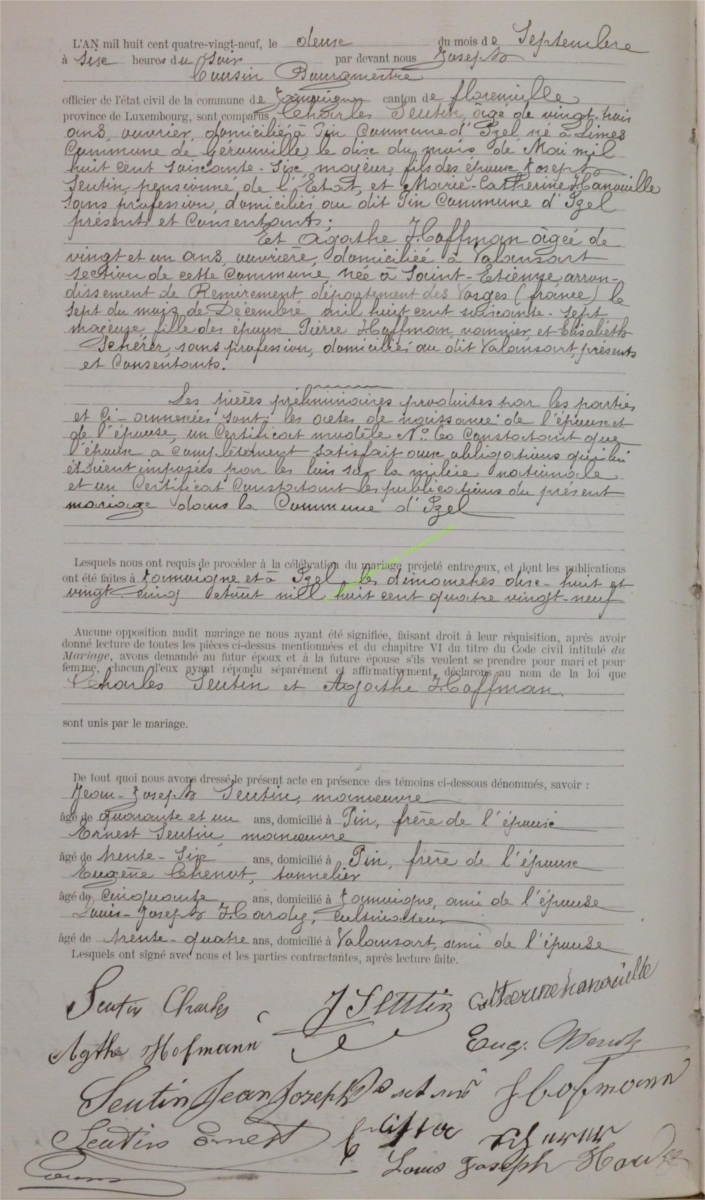 L'AN mil huit cent quatre-vingt-neuf, le deux du mois de Septembre
à Six heures du Soir par devant nous Joseph
Cousin Bourgmestre
officier de l'état civil de la commune de Jamoigne canton de florenville
province de Luxembourg, sont comparus Charles Sentin, âge de vingt-trois
ans, ouvrier, domicilié à Pin Commune d'Izel né à Limes
Commune de Gérouville le dix du mois de Mai mil
huit cent soixante-Six, majeur, fils des époux Joseph
Sentin, pensionné de l'Etat, et Marie-Catherine Hanouille
sans profession, domiciliés au dit Pin Commune d'Izel
présents et Consentants;
Et Agathe Hoffman âgée de
vingt et un ans, ouvrière, domiciliée à Valansart
section de cette Commune née à Saint-Etienne, arron-
dissement de Remirement, département des Vosges (france) le
sept du mois de Décembre mil huit cent soixante-sept
majeure, fille des époux Pierre Hoffman, vannier, et Elisabeth
Schérer, sans profession, domiciliés au dit Valansart, présents
et Consentants.
Les pièces préliminaires produites par les parties
et Ci-annexées sont: les actes de naissance de l'époux et
de l'épouse, un Certificat modèle No 60 Constatant que
l'époux a complètement satisfait aux obligations qui lui
étaient imposées par les lois sur la milice nationale
et un Certificat Constatant les publications du présent
mariage dans la Commune d'Izel
Lesquels nous ont requis de procéder à la célébration du mariage projeté entre eux, et dont les publications
ont été faites à Jamoigne et à Izel les dimanches dix-huit et
vingt-cinq août mill huit cent quatre vingt-neuf
Aucune opposition audit mariage ne nous ayant été signifiée, faisant droit à leur réquisition, après avoir
donné lecture de toutes les pièces ci-dessus mentionnées et du chapitre VI du titre du Code civil intitulé du
Mariage, avons demandé au futur époux et à la future épouse s'ils veulent se prendre pour mari et pour
femme, chacun d'eux ayant répondu séparément et affirmativement, déclarons au nom de la loi que
Charles Sentin et Agathe Hoffman
sont unis par le mariage.
De tout quoi nous avons dressé le présent acte en présence des témoins ci-dessous dénommés, savoir :
Jean-Joseph Sentin, manœuvre
âgé de quarante et un ans, domicilié à Pin, frère de l'époux
Ernest Sentin, manœuvre
âgé de trente-Six ans, domicilié à Pin, frère de l'époux
Eugène Chenot, tonnelier
âgé de Cinquante ans, domicilié à Jamoigne, ami de l'épouse
Louis-Joseph Hardy, Cultivateur
âgé de trente-quatre ans, domicilié à Valansart, ami de l'épouse
Lesquels ont signé avec nous et les parties contractantes, après lecture faite.
Sentin Charles J Sentin Catherine hanouille
Agthe Hofmann Eug.
Sentin Jean Joseph Hofmann
Sentin Ernest
Louis Joseph Hardy